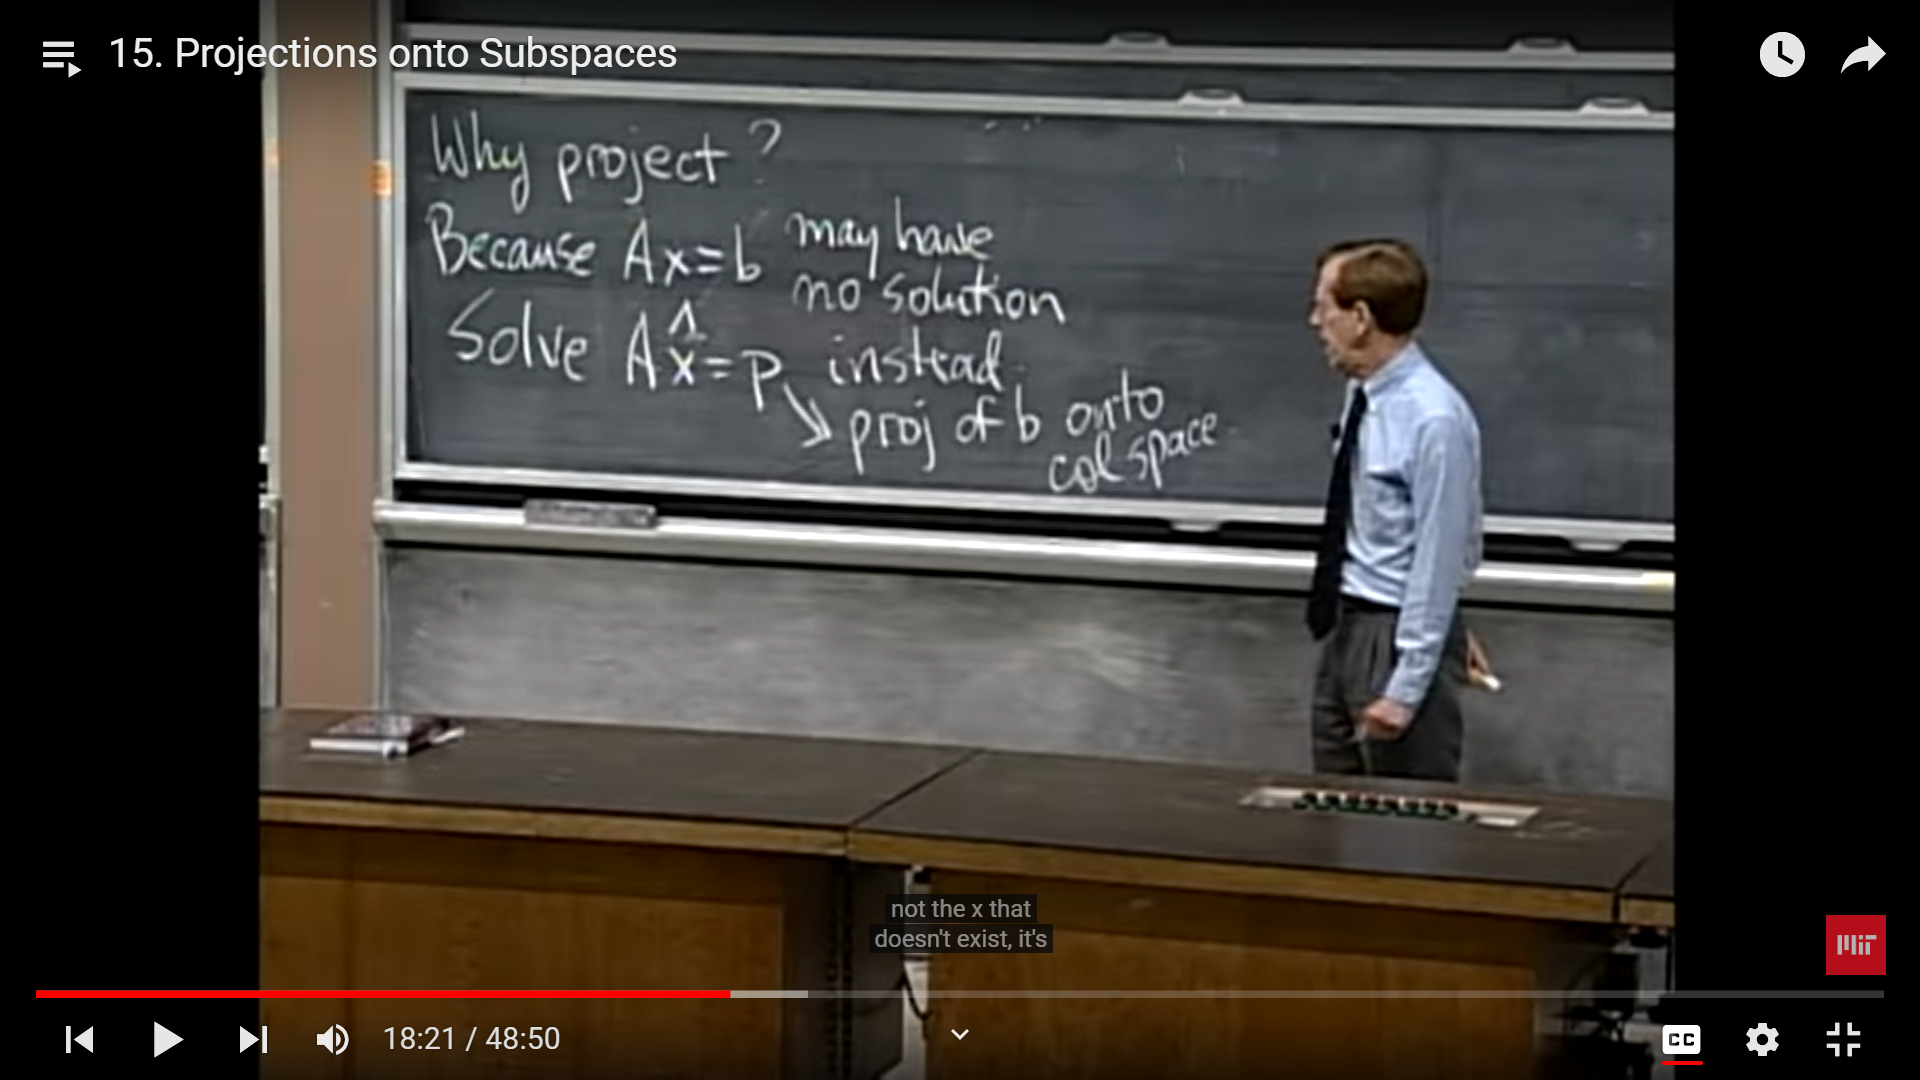 15. Projections onto Subspaces
Why project?
Because Ax=b may have
no solution
Solve Ax̂=p instead
proj of b onto
col space
not the x that
doesn't exist, it's
MIT
18:21 / 48:50
CC